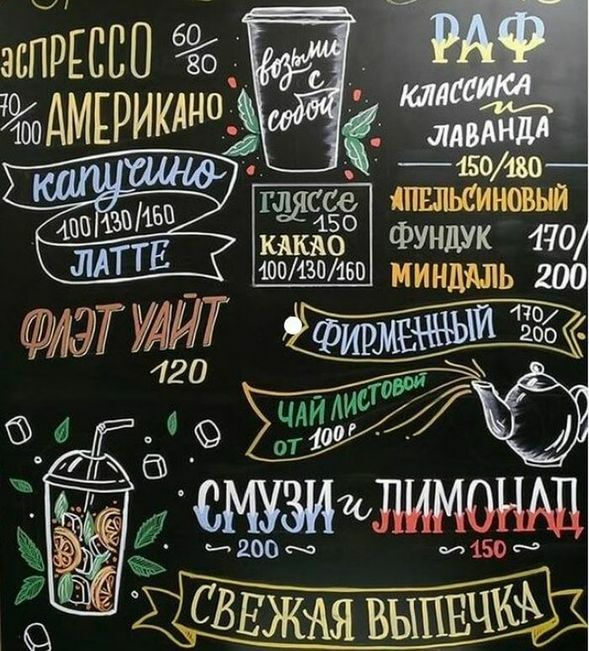 ЭСПРЕССО 60/80
70/100 АМЕРИКАНО
капучино
100/130/160
ЛАТТЕ
ФЛЭТ УАЙТ
120
возьми
с
собой
ГЛЯССЕ
150
КАКАО
100/130/160
РАФ
КЛАССИКА
и
ЛАВАНДА
150/180
АПЕЛЬСИНОВЫЙ
ФУНДУК 170/
МИНДАЛЬ 200
ФИРМЕННЫЙ 170/200
ЧАЙ ЛИСТОВОЙ
ОТ 100 Р
СМУЗИ и ЛИМОНАД
200 150
СВЕЖАЯ ВЫПЕЧКА